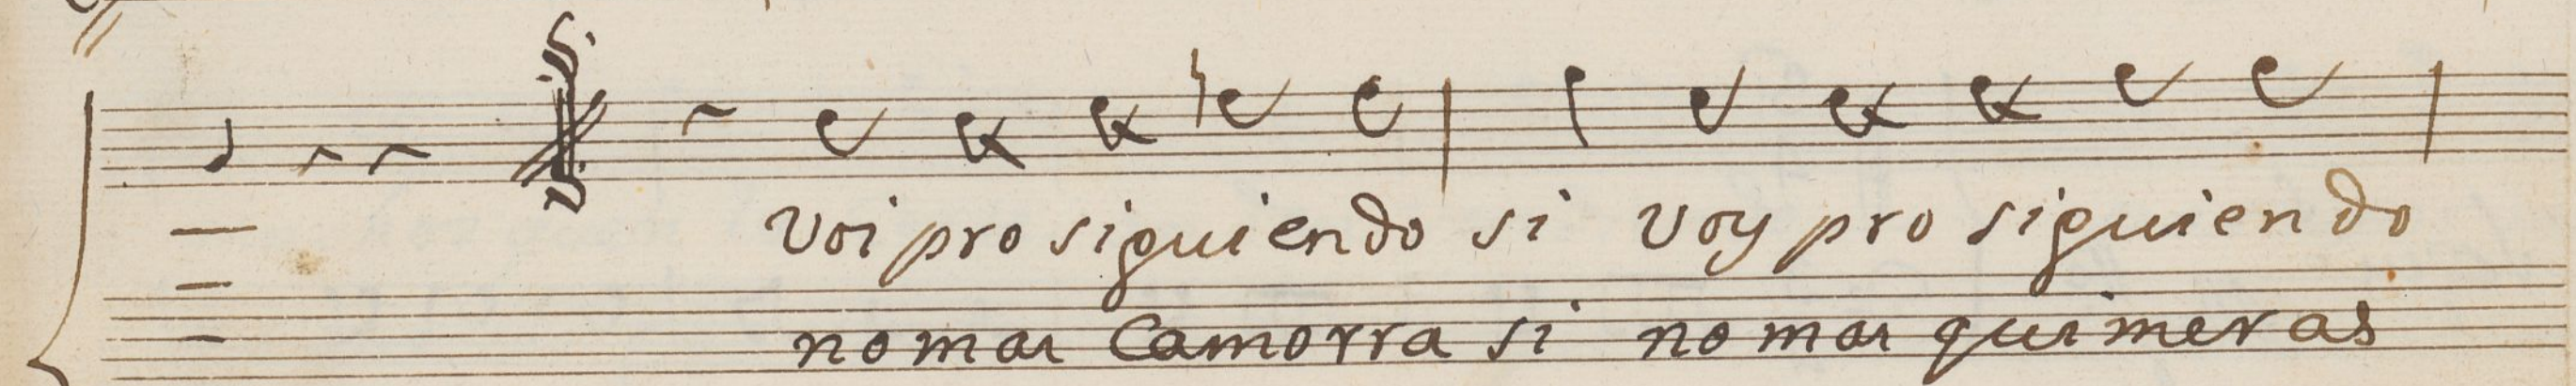 Voi pro siguiendo si voy pro siguiendo
no mas Camorra si no mas quimeras